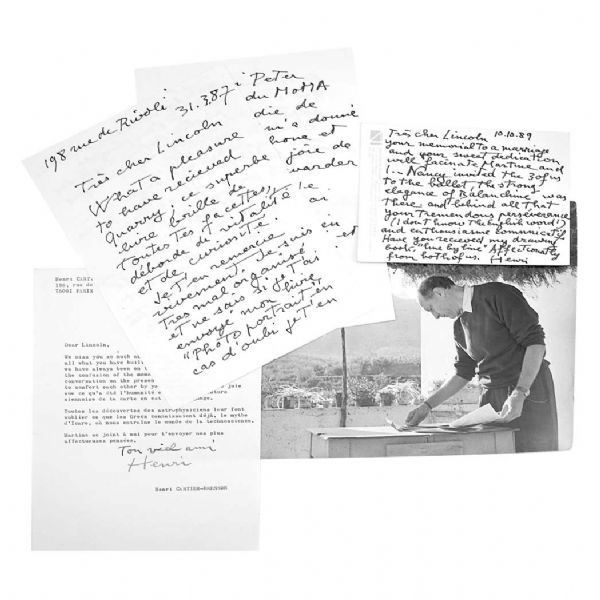 198 rue de Rivoli 31.3.87
Très cher Lincoln
What a pleasure
to have recieved
Quarry, ce superbe
livre brille de
toutes tes facettes,
déborde de vitalité
et de curiosité.
Je t'en remercie
vivement. Je suis
très mal organisé
et ne sais si je t'ai
envoyé mon livre
"Photo Portrait" en
cas d'oubli je t'en
Peter
du MoMA
die de
m'a donné
hone et
joie de
warder
le
en
et
Très cher Lincoln 10.10.89
your memorial to a marriage
and your sweet dedication
will facinate Martine and
I... Nancy invited the 3 of us
to the ballet, the strong
elegance of Balanchine was
there and behind all that
your tremendous perseverance
(I don't know the english word!)
and enthousiasme comunicatif
Have you received my drawing
book, "line by line" Affectionately
from both of us. Henri
Henri CART
198, rue de
75001 PARIS
Dear Lincoln,
We miss you so much
all what you have built
we have always been on
the confusion of the
conversation on the presen
to comfort each other by joie
son ce qu'a été l'humanité
sionnaise de la carte en est
Toutes les découvertes des astrophysiciens leur font
oublier ce que les Grecs connaissaient déjà, le mythe
d'Icare, où nous entraîne le monde de la technoscience.
Martine se joint à moi pour t'envoyer nos plus
affectueuses pensées.
Ton vieil ami
Henri
Henri CARTIER-BRESSON